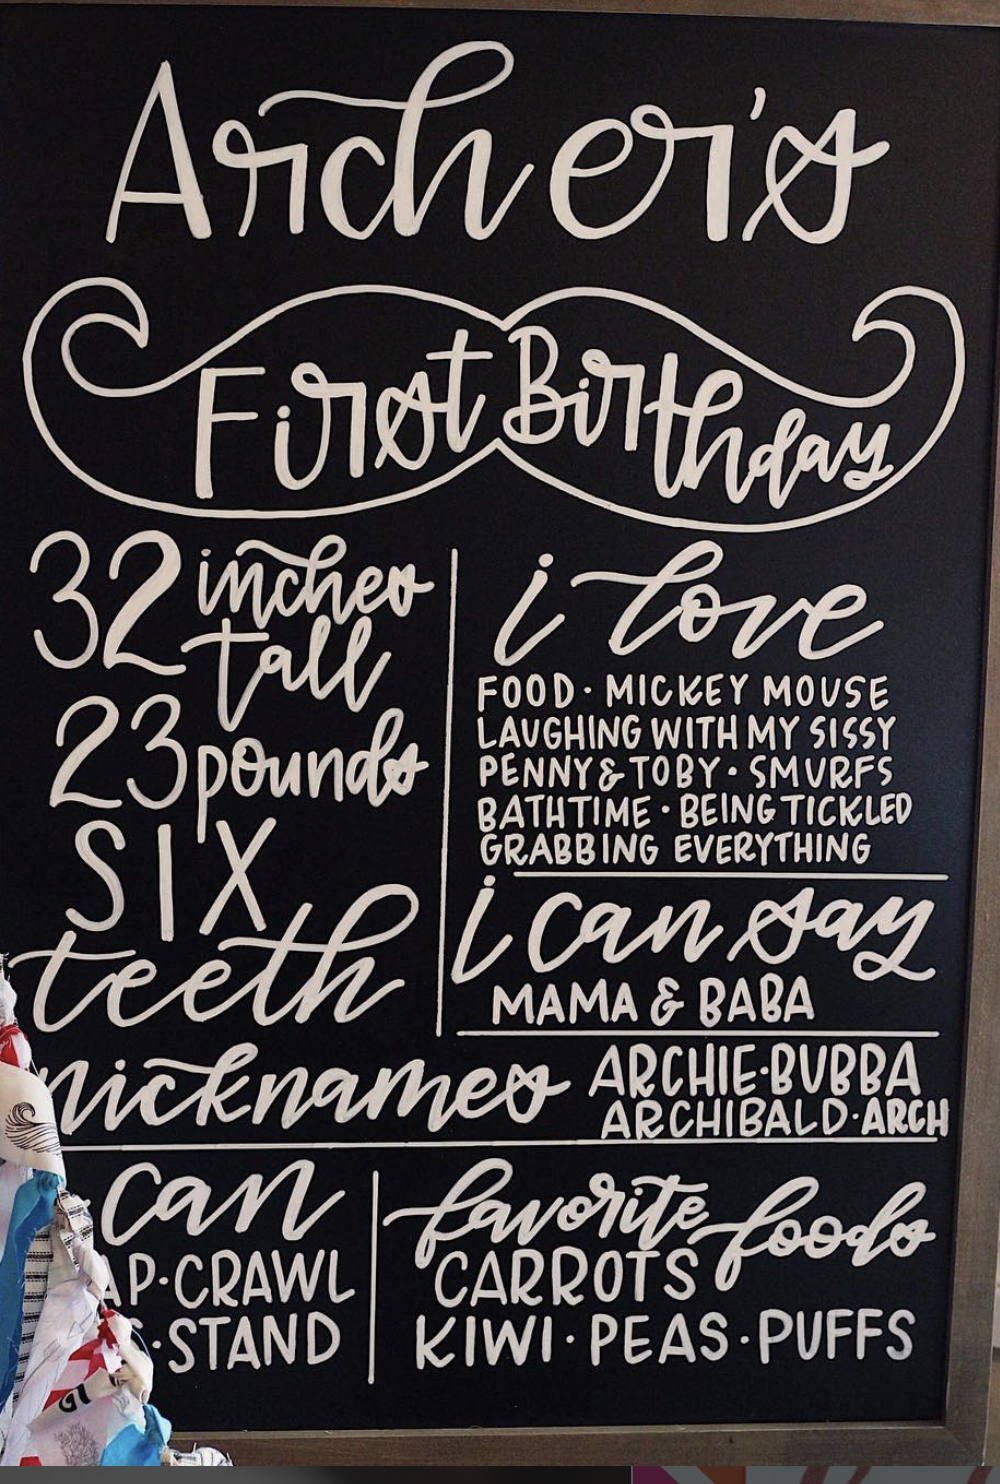 Archer's
First Birthday
32 inches
tall
23 pounds
SIX
teeth
i love
FOOD · MICKEY MOUSE
LAUGHING WITH MY SISSY
PENNY & TOBY · SMURFS
BATHTIME · BEING TICKLED
GRABBING EVERYTHING
i can say
MAMA & BABA
nicknames ARCHIE · BUBBA
ARCHIBALD · ARCH
can
· CRAWL
· STAND
favorite foods
CARROTS
KIWI · PEAS · PUFFS